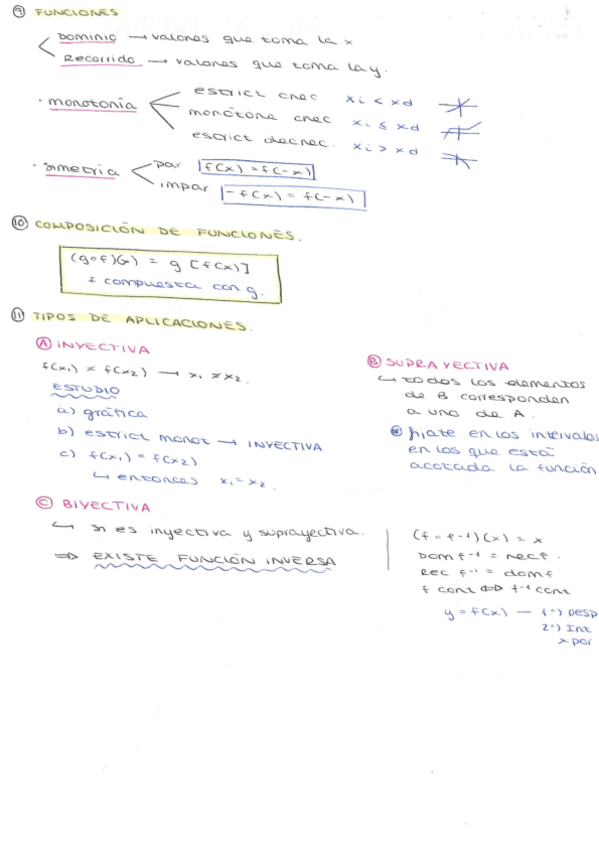 ⑨ FUNCIONES
DOMINIO → valores que toma la x
Recorrido → valores que toma la y.
· monotonía
estrict crec xi < xd
monótona crec xi ≤ xd
estrict decrec. xi > xd
· simetria
par f(x) = f(-x)
impar -f(x) = f(-x)
⑩ COMPOSICIÓN DE FUNCIONES.
(g∘f)(x) = g [f(x)]
f compuesta con g.
⑪ TIPOS DE APLICACIONES.
Ⓐ INYECTIVA
f(x₁) ≠ f(x₂) → x₁ ≠ x₂.
ESTUDIO
a) gráfica
b) estrict monot → INYECTIVA
c) f(x₁) = f(x₂)
↳ entonces x₁ = x₂.
Ⓑ SUPRAYECTIVA
↳ todos los elementos
de B corresponden
a uno de A.
fijate en los intervalos
en los que está
acotada la función
Ⓒ BIYECTIVA
↳ si es inyectiva y suprayectiva.
⇒ EXISTE FUNCIÓN INVERSA
(f ∘ f⁻¹)(x) = x
Dom f⁻¹ = rec f.
Rec f⁻¹ = dom f
f cont ⇔ f⁻¹ cont
y = f(x) — 1º) Desp
2º) Int
x por